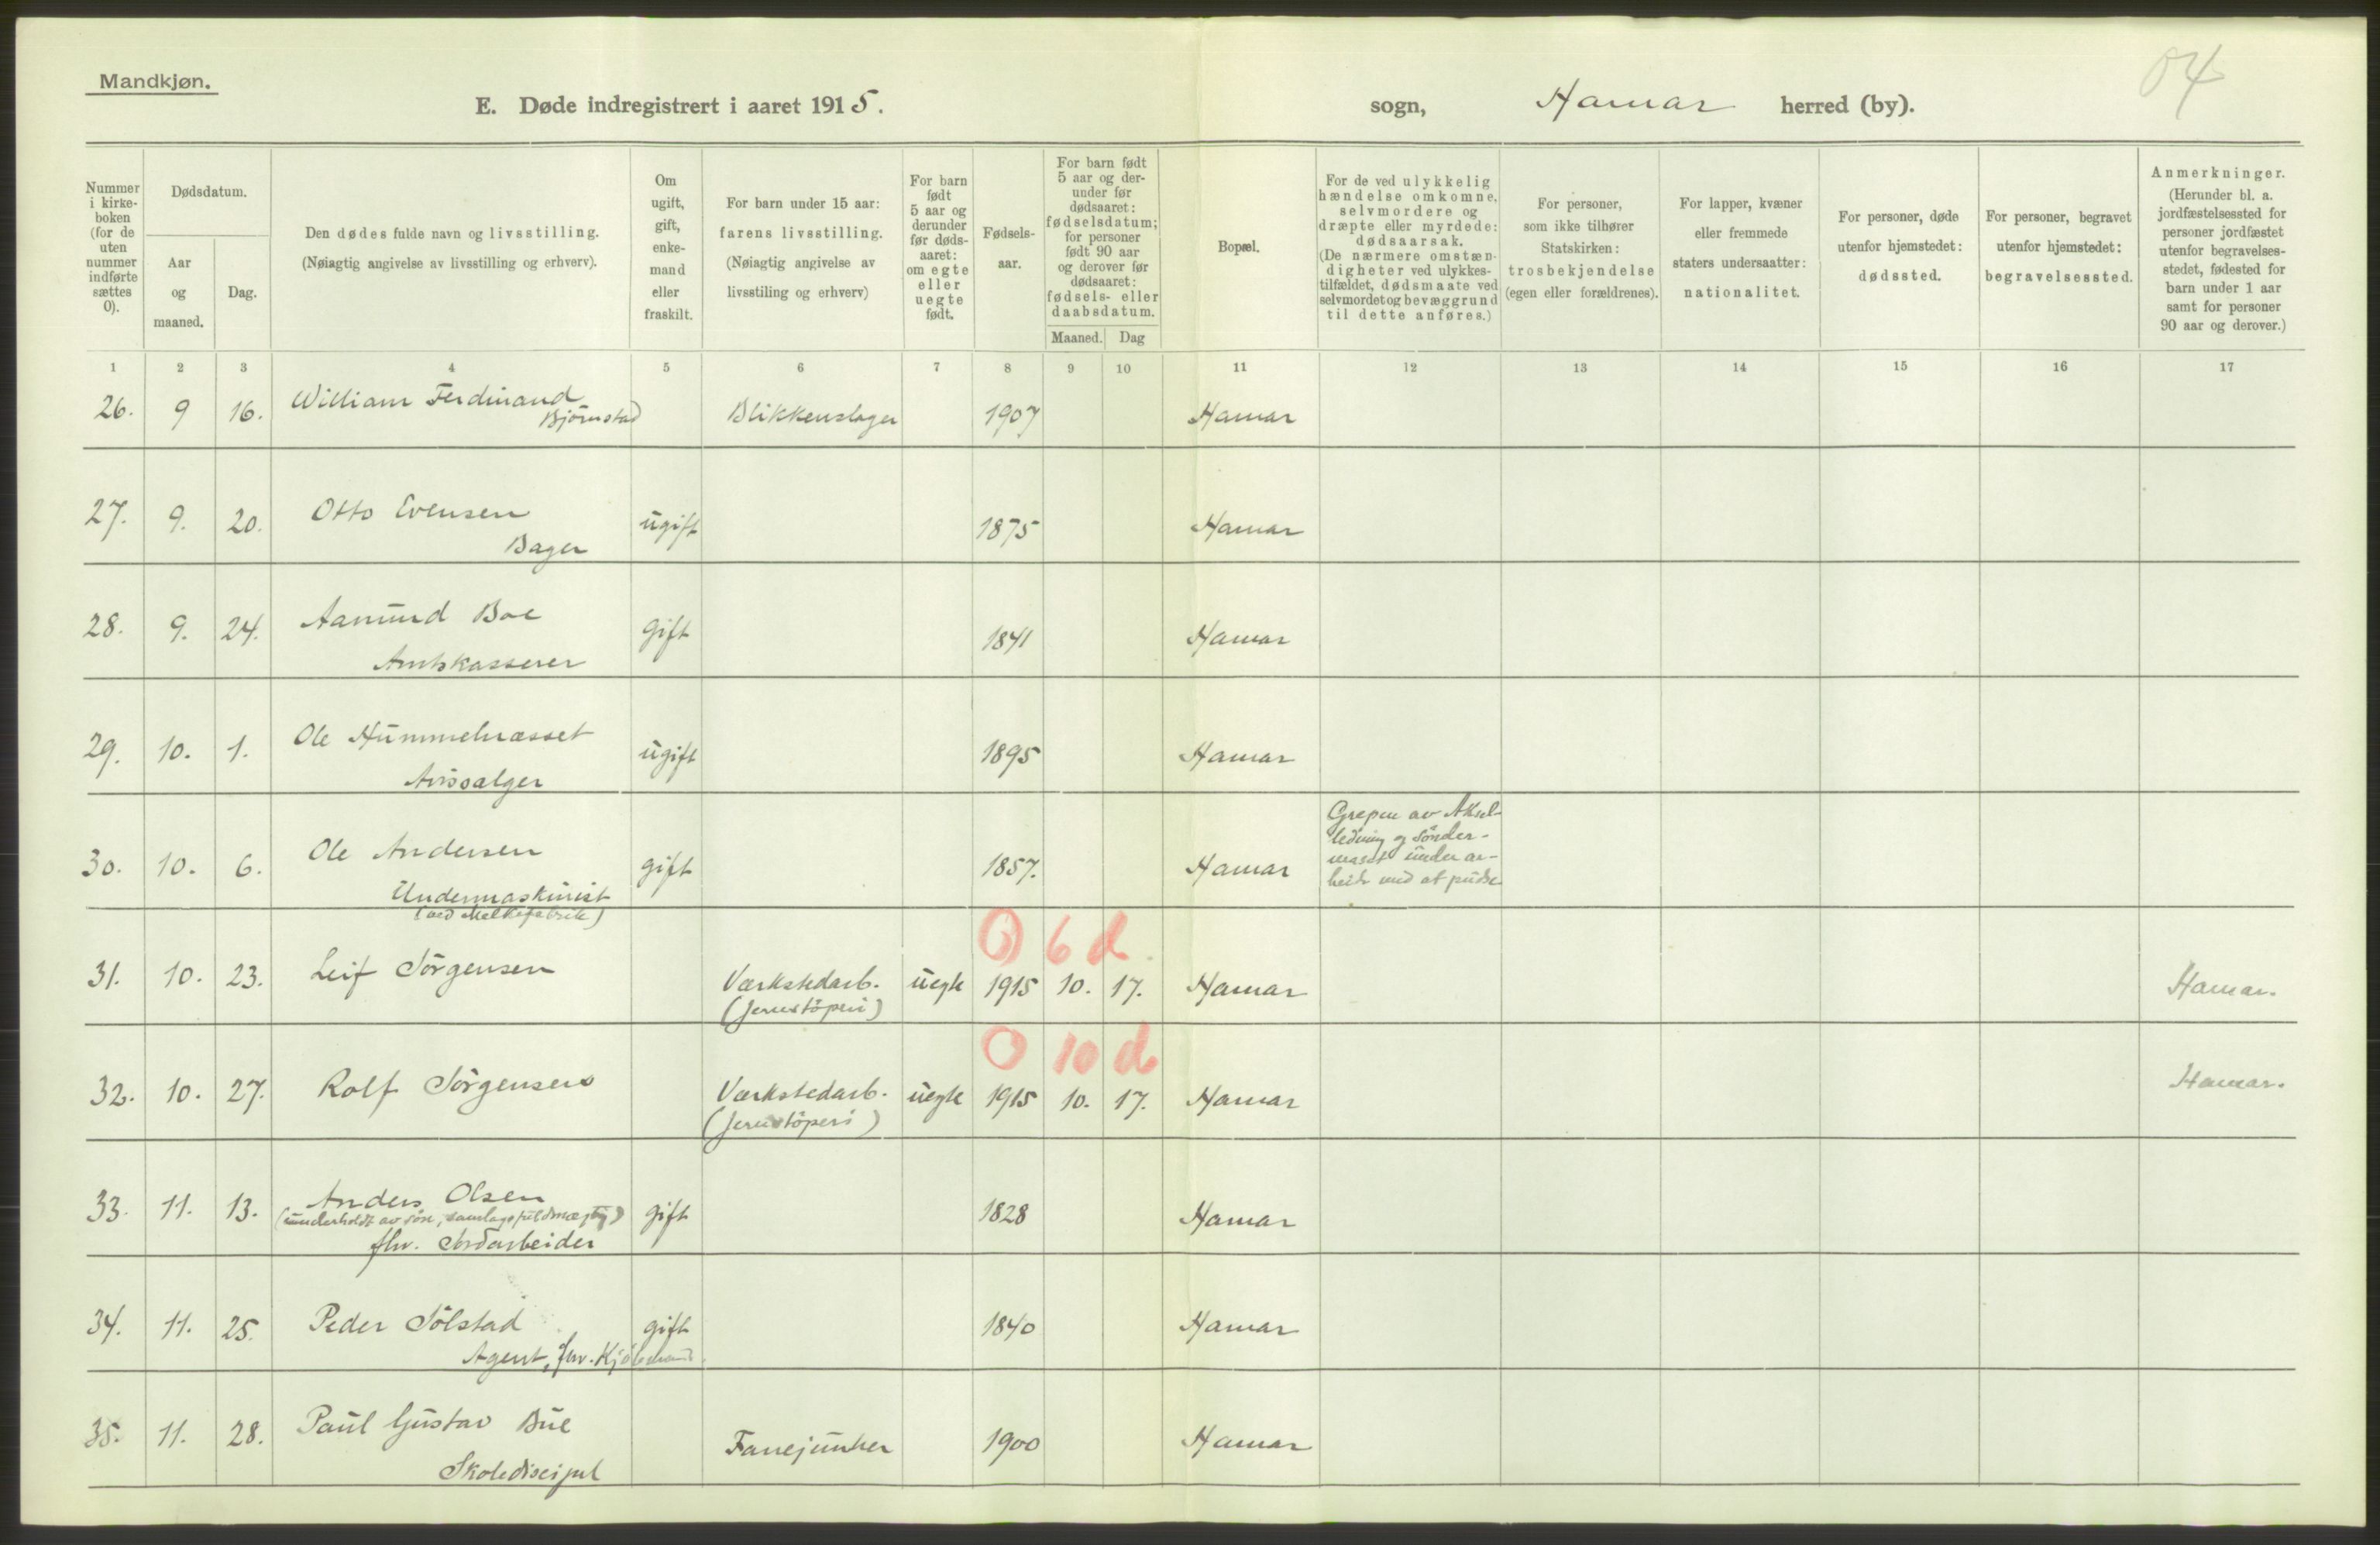 Mandkjøn.
E. Døde indregistrert i aaret 1915.
sogn, Hamar herred (by).
04
Nummer i kirke-boken (for de uten nummer indførte sættes 0).
Dødsdatum.
Aar og maaned.
Dag.
Den dødes fulde navn og livsstilling.
(Nøiagtig angivelse av livsstilling og erhverv).
Om ugift, gift, enke-mand eller fraskilt.
For barn under 15 aar: farens livsstilling. (Nøiagtig angivelse av livsstiling og erhverv)
For barn født 5 aar og derunder før døds-aaret: om egte eller uegte født.
Fødsels-aar.
For barn født 5 aar og der-under før dødsaaret: fødselsdatum; for personer født 90 aar og derover før dødsaaret: fødsels- eller daabsdatum.
Maaned. Dag
Bopæl.
For de ved ulykkelig hændelse omkomne, selvmordere og dræpte eller myrdede: dødsaarsak. (De nærmere omstæn-digheter ved ulykkes-tilfældet, dødsmaate ved selvmordet og bevæggrund til dette anføres.)
For personer, som ikke tilhører Statskirken: trosbekjendelse (egen eller forældrenes).
For lapper, kvæner eller fremmede staters undersaatter: nationalitet.
For personer, døde utenfor hjemstedet: dødssted.
For personer, begravet utenfor hjemstedet: begravelsessted.
Anmerkninger. (Herunder bl. a. jordfæstelsessted for personer jordfæstet utenfor begravelses-stedet, fødested for barn under 1 aar samt for personer 90 aar og derover.)
1 2 3 4 5 6 7 8 9 10 11 12 13 14 15 16 17
26. 9 16. William Ferdinand Blikkenslager 1907 Hamar
Bjørnstad
27. 9. 20. Otto Evensen ugift 1875 Hamar
Bager
28. 9. 24. Aamund Boe gift 1841 Hamar
Amtskasserer
29. 10. 1. Ole Hummelnæsset ugift 1895 Hamar
Avissælger
30. 10. 6. Ole Andersen gift 1857. Hamar
Undermaskinist
(ved Melkefabrik)
Grepen av Aksel-
ledning og sønder-
mast under ar-
beide med at pudse
0 6 d
31. 10. 23. Leif Jörgensen Værkstedarb. uegte 1915 10. 17. Hamar Hamar.
(Jernstöperi)
0 10 d
32. 10. 27. Rolf Jörgensen Værkstedarb. uegte 1915 10. 17. Hamar Hamar.
(Jernstöperi)
33. 11. 13. Anders Olsen gift 1828 Hamar
(underholdt av søn, samlagsfuldmægtig)
fhv. Jordarbeider
34. 11. 25. Peder Sölstad gift 1840 Hamar
Agent, fhv. Kjöbmand
35. 11. 28. Paul Gustav Bue Fanejunker 1900 Hamar
Skolediscipel